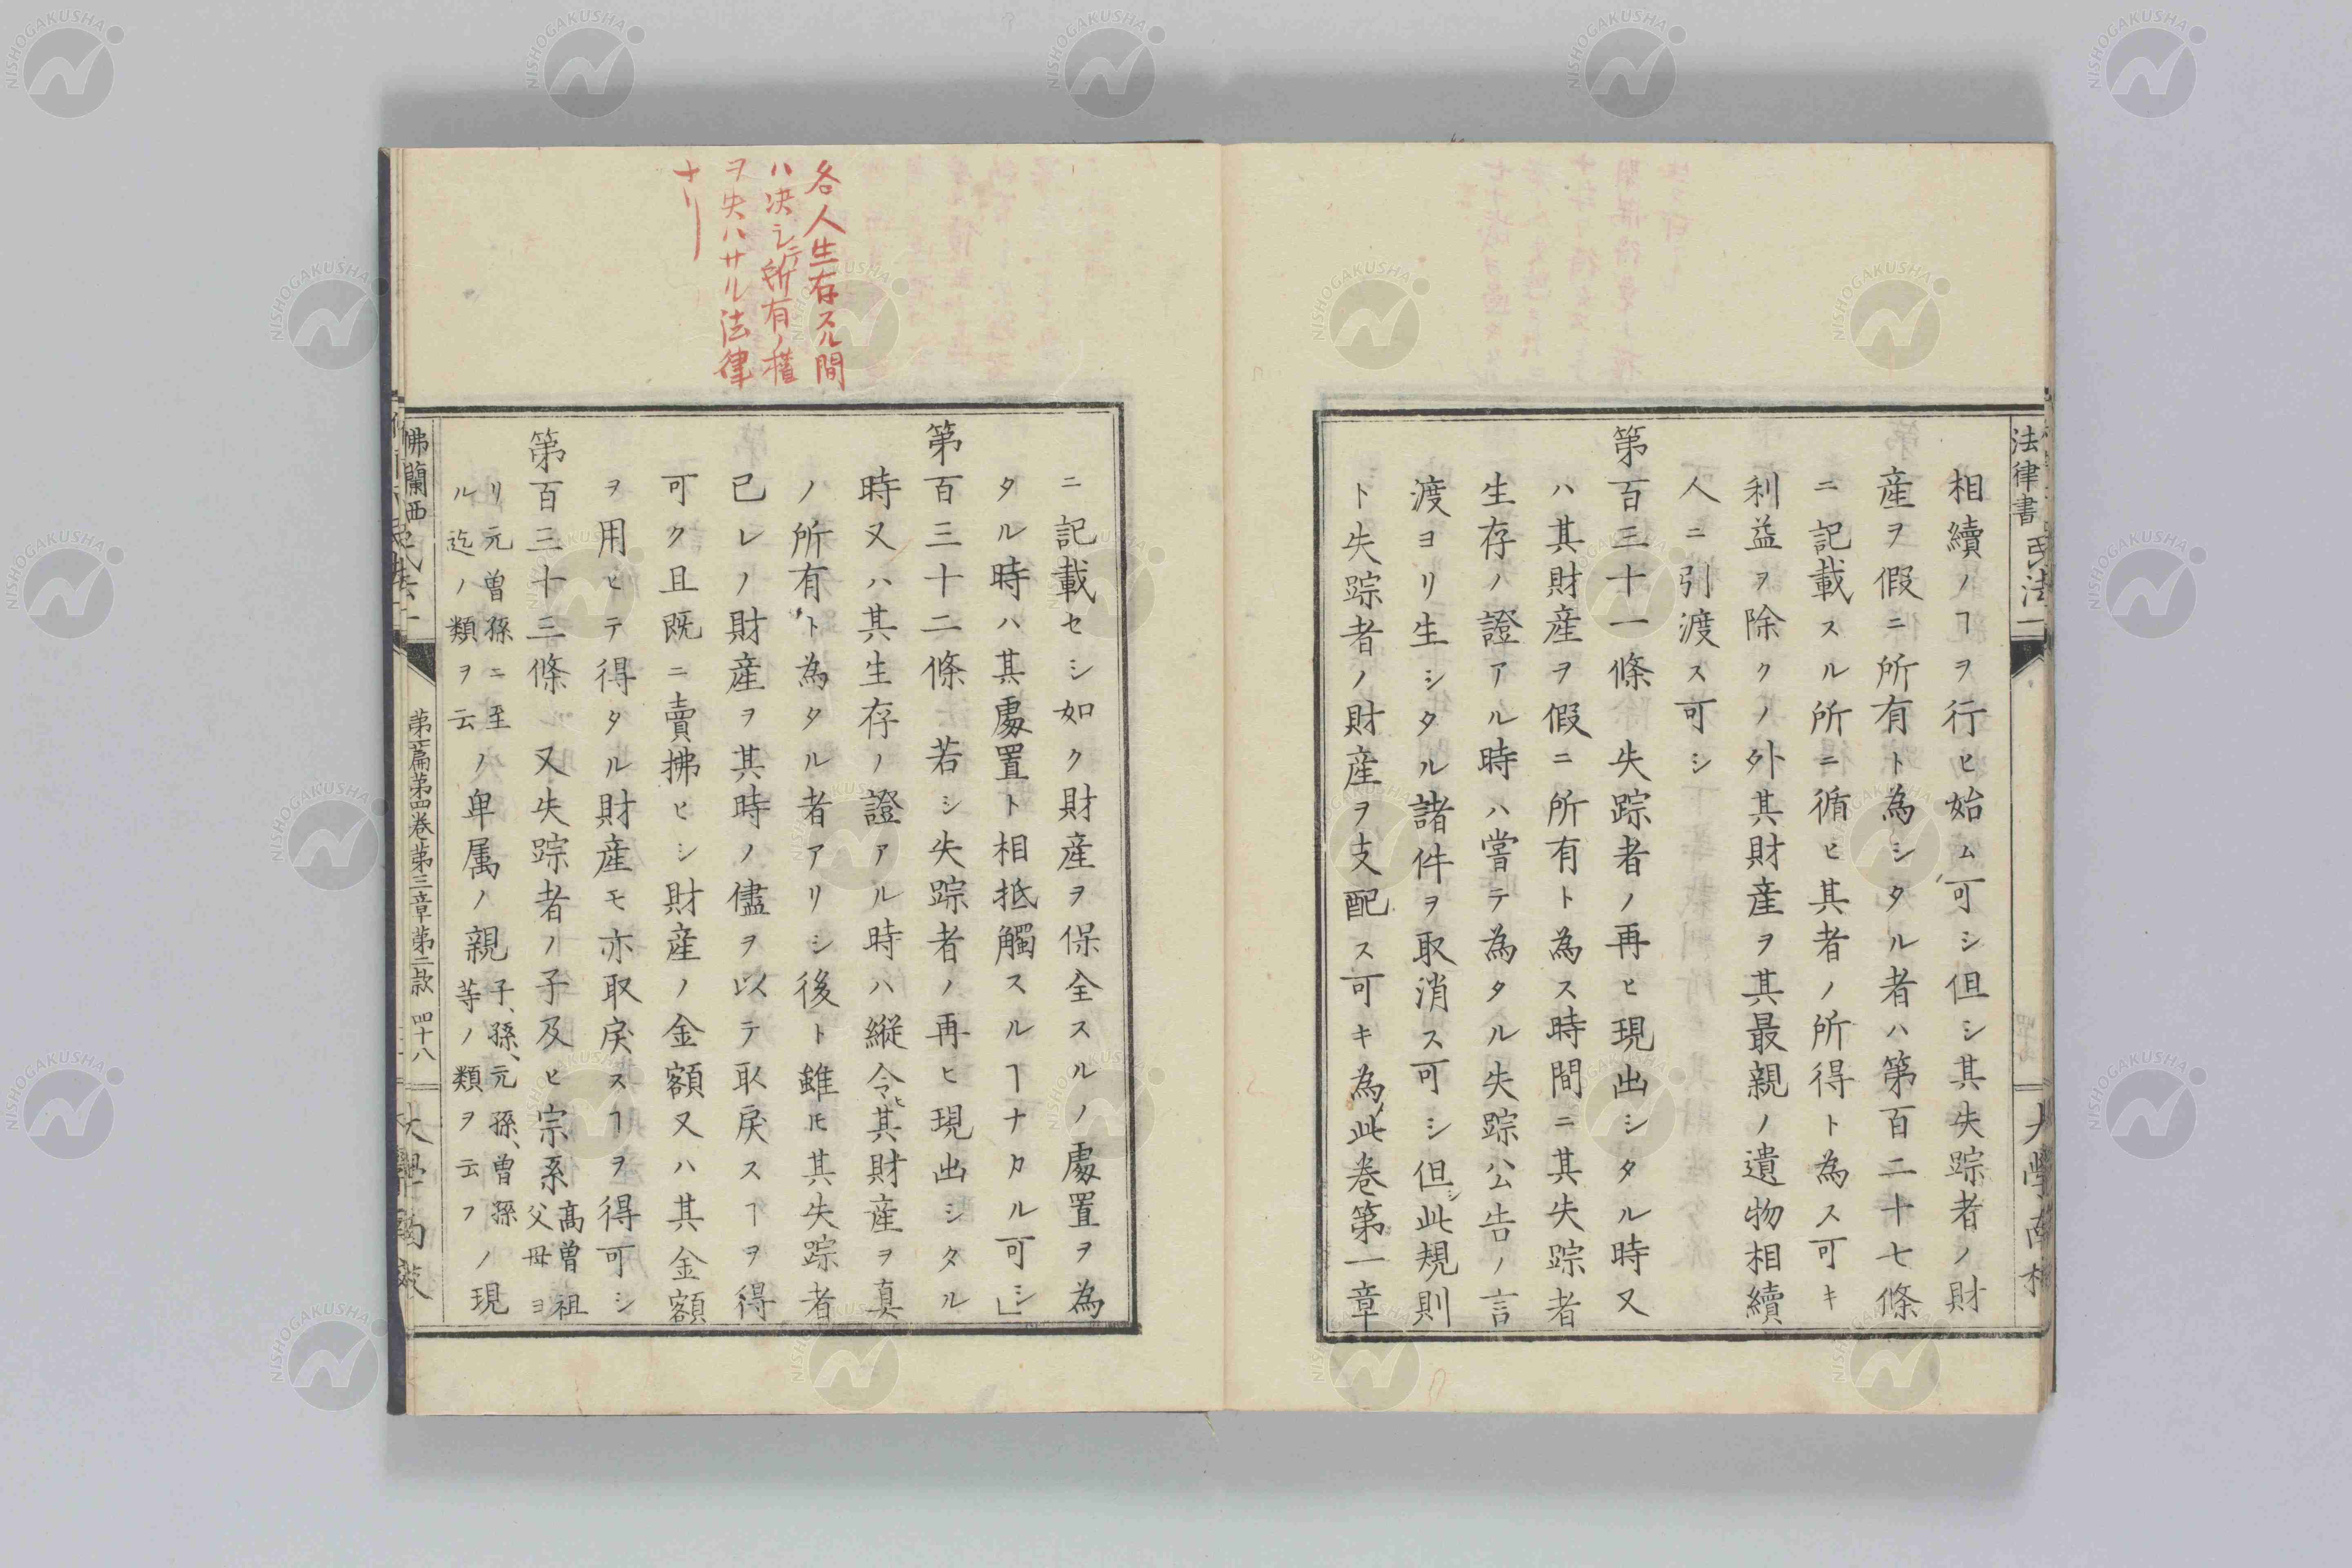 法律書 民法一
相續ノヿヲ行ヒ始ム可シ但シ其失踪者ノ財
産ヲ假ニ所有ト為シタル者ハ第百二十七條
ニ記載スル所ニ循ヒ其者ノ所得ト為ス可キ
利益ヲ除クノ外其財産ヲ其最親ノ遺物相續
人ニ引渡ス可シ
第百三十一條 失踪者ノ再ヒ現出シタル時又
ハ其財産ヲ假ニ所有ト為ス時間ニ其失踪者
生存ノ證アル時ハ嘗テ為タル失踪公告ノ言
渡ヨリ生シタル諸件ヲ取消ス可シ但シ此規則
ト失踪者ノ財産ヲ支配ス可キ為此卷第一章
ニ記載セシ如ク財産ヲ保全スルノ處置ヲ為
タル時ハ其處置ト相抵觸スルヿナカル可シ」
第百三十二條 若シ失踪者ノ再ヒ現出シタル
時又ハ其生存ノ證アル時ハ縱令ヒ其財産ヲ真
ノ所有ト為タル者アリシ後ト雖𪜈其失踪者
已レノ財産ヲ其時ノ儘ヲ以テ取戻スヿヲ得
可ク且既ニ賣拂ヒシ財産ノ金額又ハ其金額
ヲ用ヒテ得タル財産モ亦取戻スヿヲ得可シ
第百三十三條 又失踪者ノ子及ヒ宗系高曽祖父母ヨ
リ元曽孫ニ至ル迄ノ類ヲ云ノ卑属ノ親子、孫、元孫、曽孫等ノ類ヲ云フノ現
佛蘭西
第一篇第四卷第三章第二款 四十八
各人生存ノ間
ハ決シテ所有ノ權
ヲ失ハサル法律
ナリ